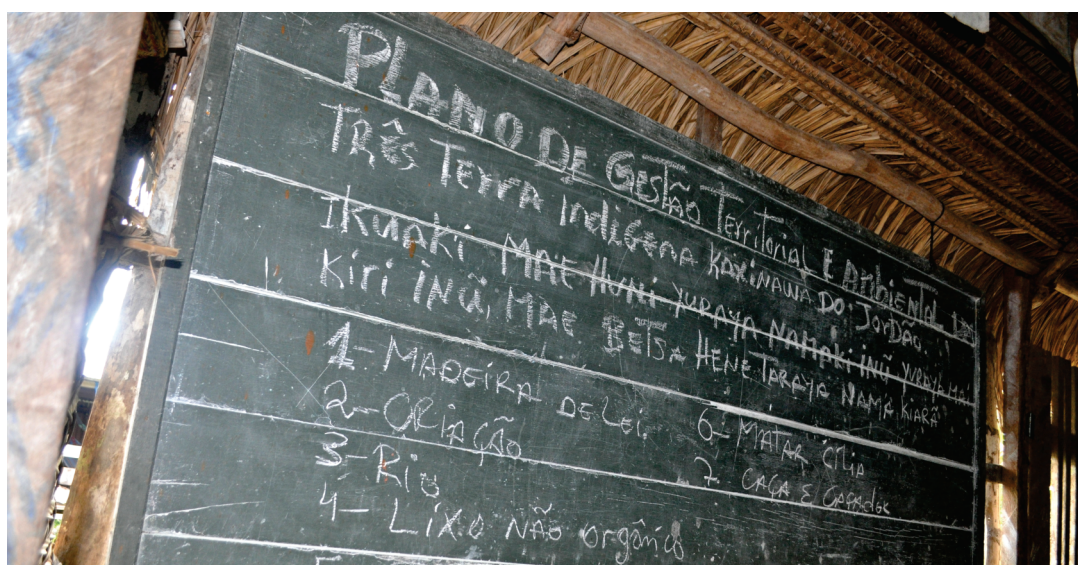 PLANO DE GESTÃO Territorial E Ambiental DAS
TRÊS Terra Indígena KAXINAWA DO JorDÃO.
IKUNAKI MAE HUNI YURAYA NAMAKI INŨ YURAYA MAE
Kiri INŨ, MAE BETSA HENE TARAYA NAMA KIARÃ
1- MADEIRA DE LEI.
2- CRIAÇÃO
3- Rio
4- LIXO NÃO orgânico
6- MATAR CILIA
7 CAÇA E CAÇADOR